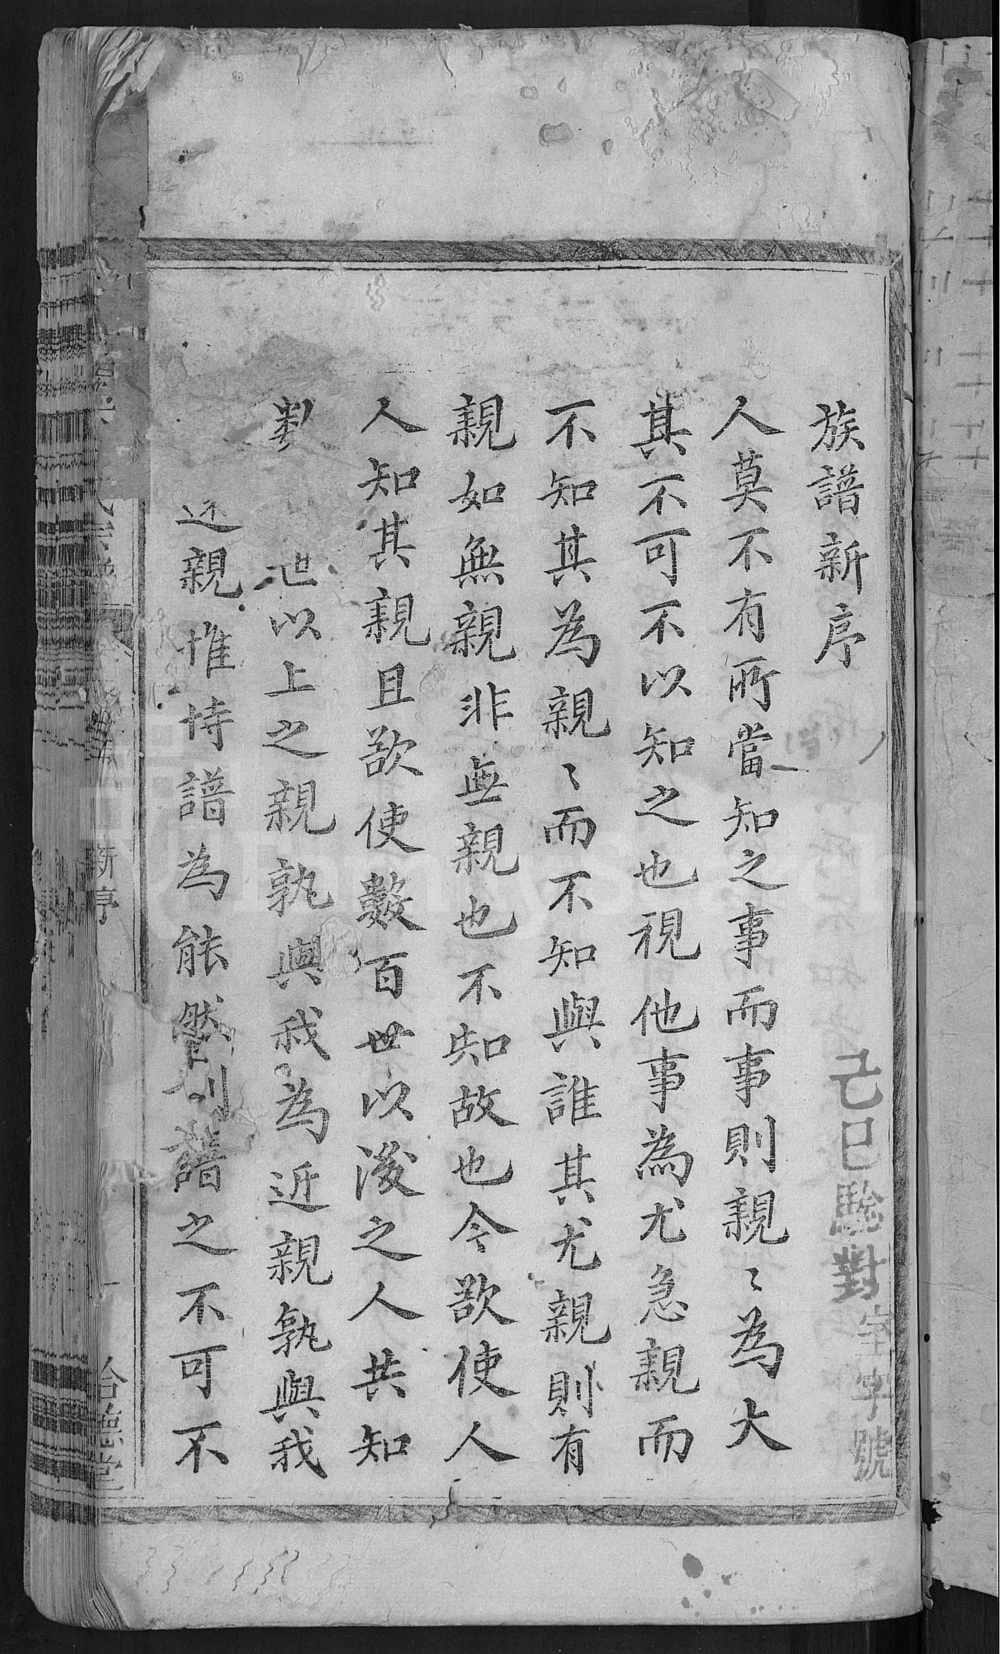 族譜新序
己巳驗對
字號
人莫不有所當知之事而事則親〻為大
其不可不以知之也視他事為尤急親而
不知其為親〻而不知與誰其尤親則有
親如無親非無親也不知故也今欲使人
人知其親且欲使數百世以後之人共知
世以上之親孰與我為近親孰與我
近親惟恃譜為能然則譜之不可不
新序